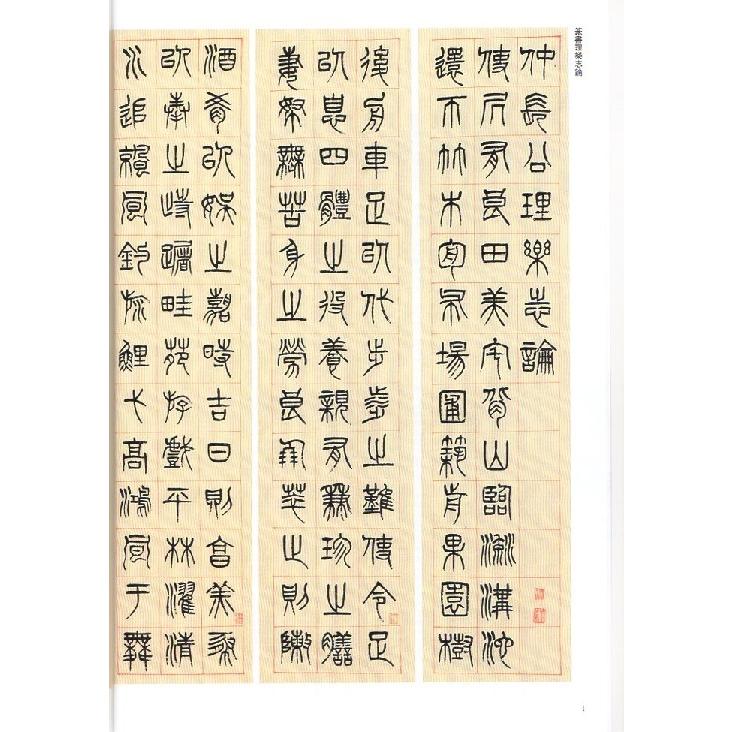 篆書理樂志論
仲長公理樂志論
使居有良田美宅背山臨流溝池
環帀竹木周布場圃築前果園樹
後舟車足以代步涉之難使令足
以息四體之役養親有兼珍之膳
妻孥無苦身之勞良朋萃止則陳
酒肴以娛之嘉時吉日則亯羔豚
以奉之躊躇畦苑游戲平林濯清
水追涼風釣游鯉弋高鴻風于舞